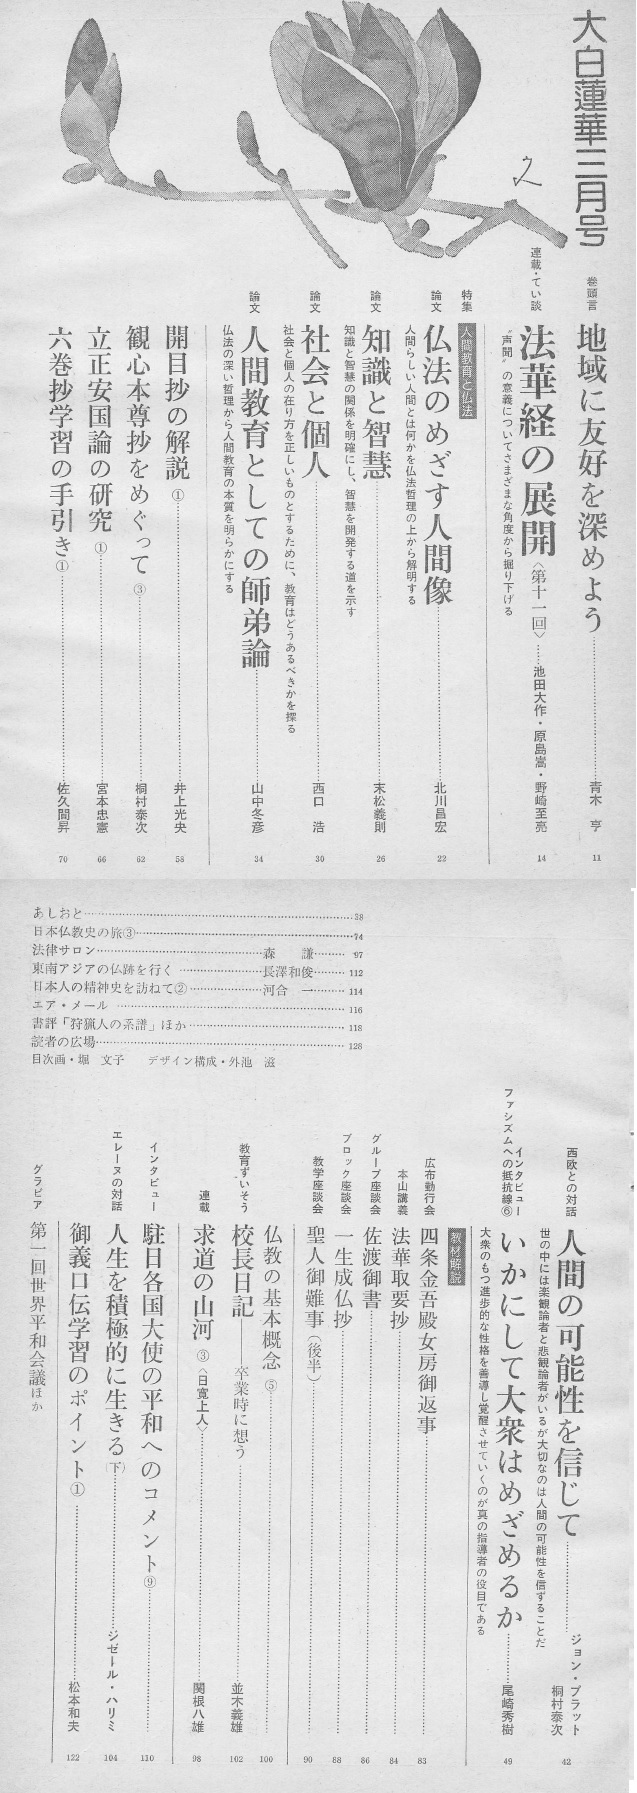 大白蓮華三月号
巻頭言
地域に友好を深めよう……青木 亨 11
連載・てい談
法華経の展開〈第十一回〉……池田大作・原島嵩・野崎至亮 14
〝声聞〟の意義についてさまざまな角度から掘り下げる
特集
人間教育と仏法
論文
仏法のめざす人間像……北川昌宏 22
人間らしい人間とは何かを仏法哲理の上から解明する
論文
知識と智慧……末松義則 26
知識と智慧の関係を明確にし、智慧を開発する道を示す
論文
社会と個人……西口 浩 30
社会と個人の在り方を正しいものとするために、教育はどうあるべきかを探る
論文
人間教育としての師弟論……山中冬彦 34
仏法の深い哲理から人間教育の本質を明らかにする
開目抄の解説①……井上光央 58
観心本尊抄をめぐって③……桐村泰次 62
立正安国論の研究①……宮本忠憲 66
六巻抄学習の手引き①……佐久間昇 70
あしおと……38
日本仏教史の旅③……74
法律サロン……森 謙……97
東南アジアの仏跡を行く……長澤和俊……112
日本人の精神史を訪ねて②……河合 一……114
エア・メール……116
書評「狩猟人の系譜」ほか……118
読者の広場……128
目次画・堀 文子 デザイン構成・外池 滋
西欧との対話
人間の可能性を信じて……ジョン・プラット 桐村泰次 42
世の中には楽観論者と悲観論者がいるが大切なのは人間の可能性を信ずることだ
インタビュー
ファシズムへの抵抗線⑥
いかにして大衆はめざめるか……尾崎秀樹 49
大衆のもつ進歩的な性格を善導し覚醒させていくのが真の指導者の役目である
教材解説
広布勤行会
四条金吾殿女房御返事……83
本山講義
法華取要抄……84
グループ座談会
佐渡御書……86
ブロック座談会
一生成仏抄……88
教学座談会
聖人御難事（後半）……90
仏教の基本概念⑤……100
教育ずいそう
校長日記 卒業時に想う……並木義雄 102
連載
求道の山河③〈日寛上人〉……関根八雄 98
インタビュー
駐日各国大使の平和へのコメント⑨……110
エレーヌの対話
人生を積極的に生きる（下）……ジゼール・ハリミ 104
御義口伝学習のポイント①……松本和夫 122
グラビア
第一回世界平和会議ほか